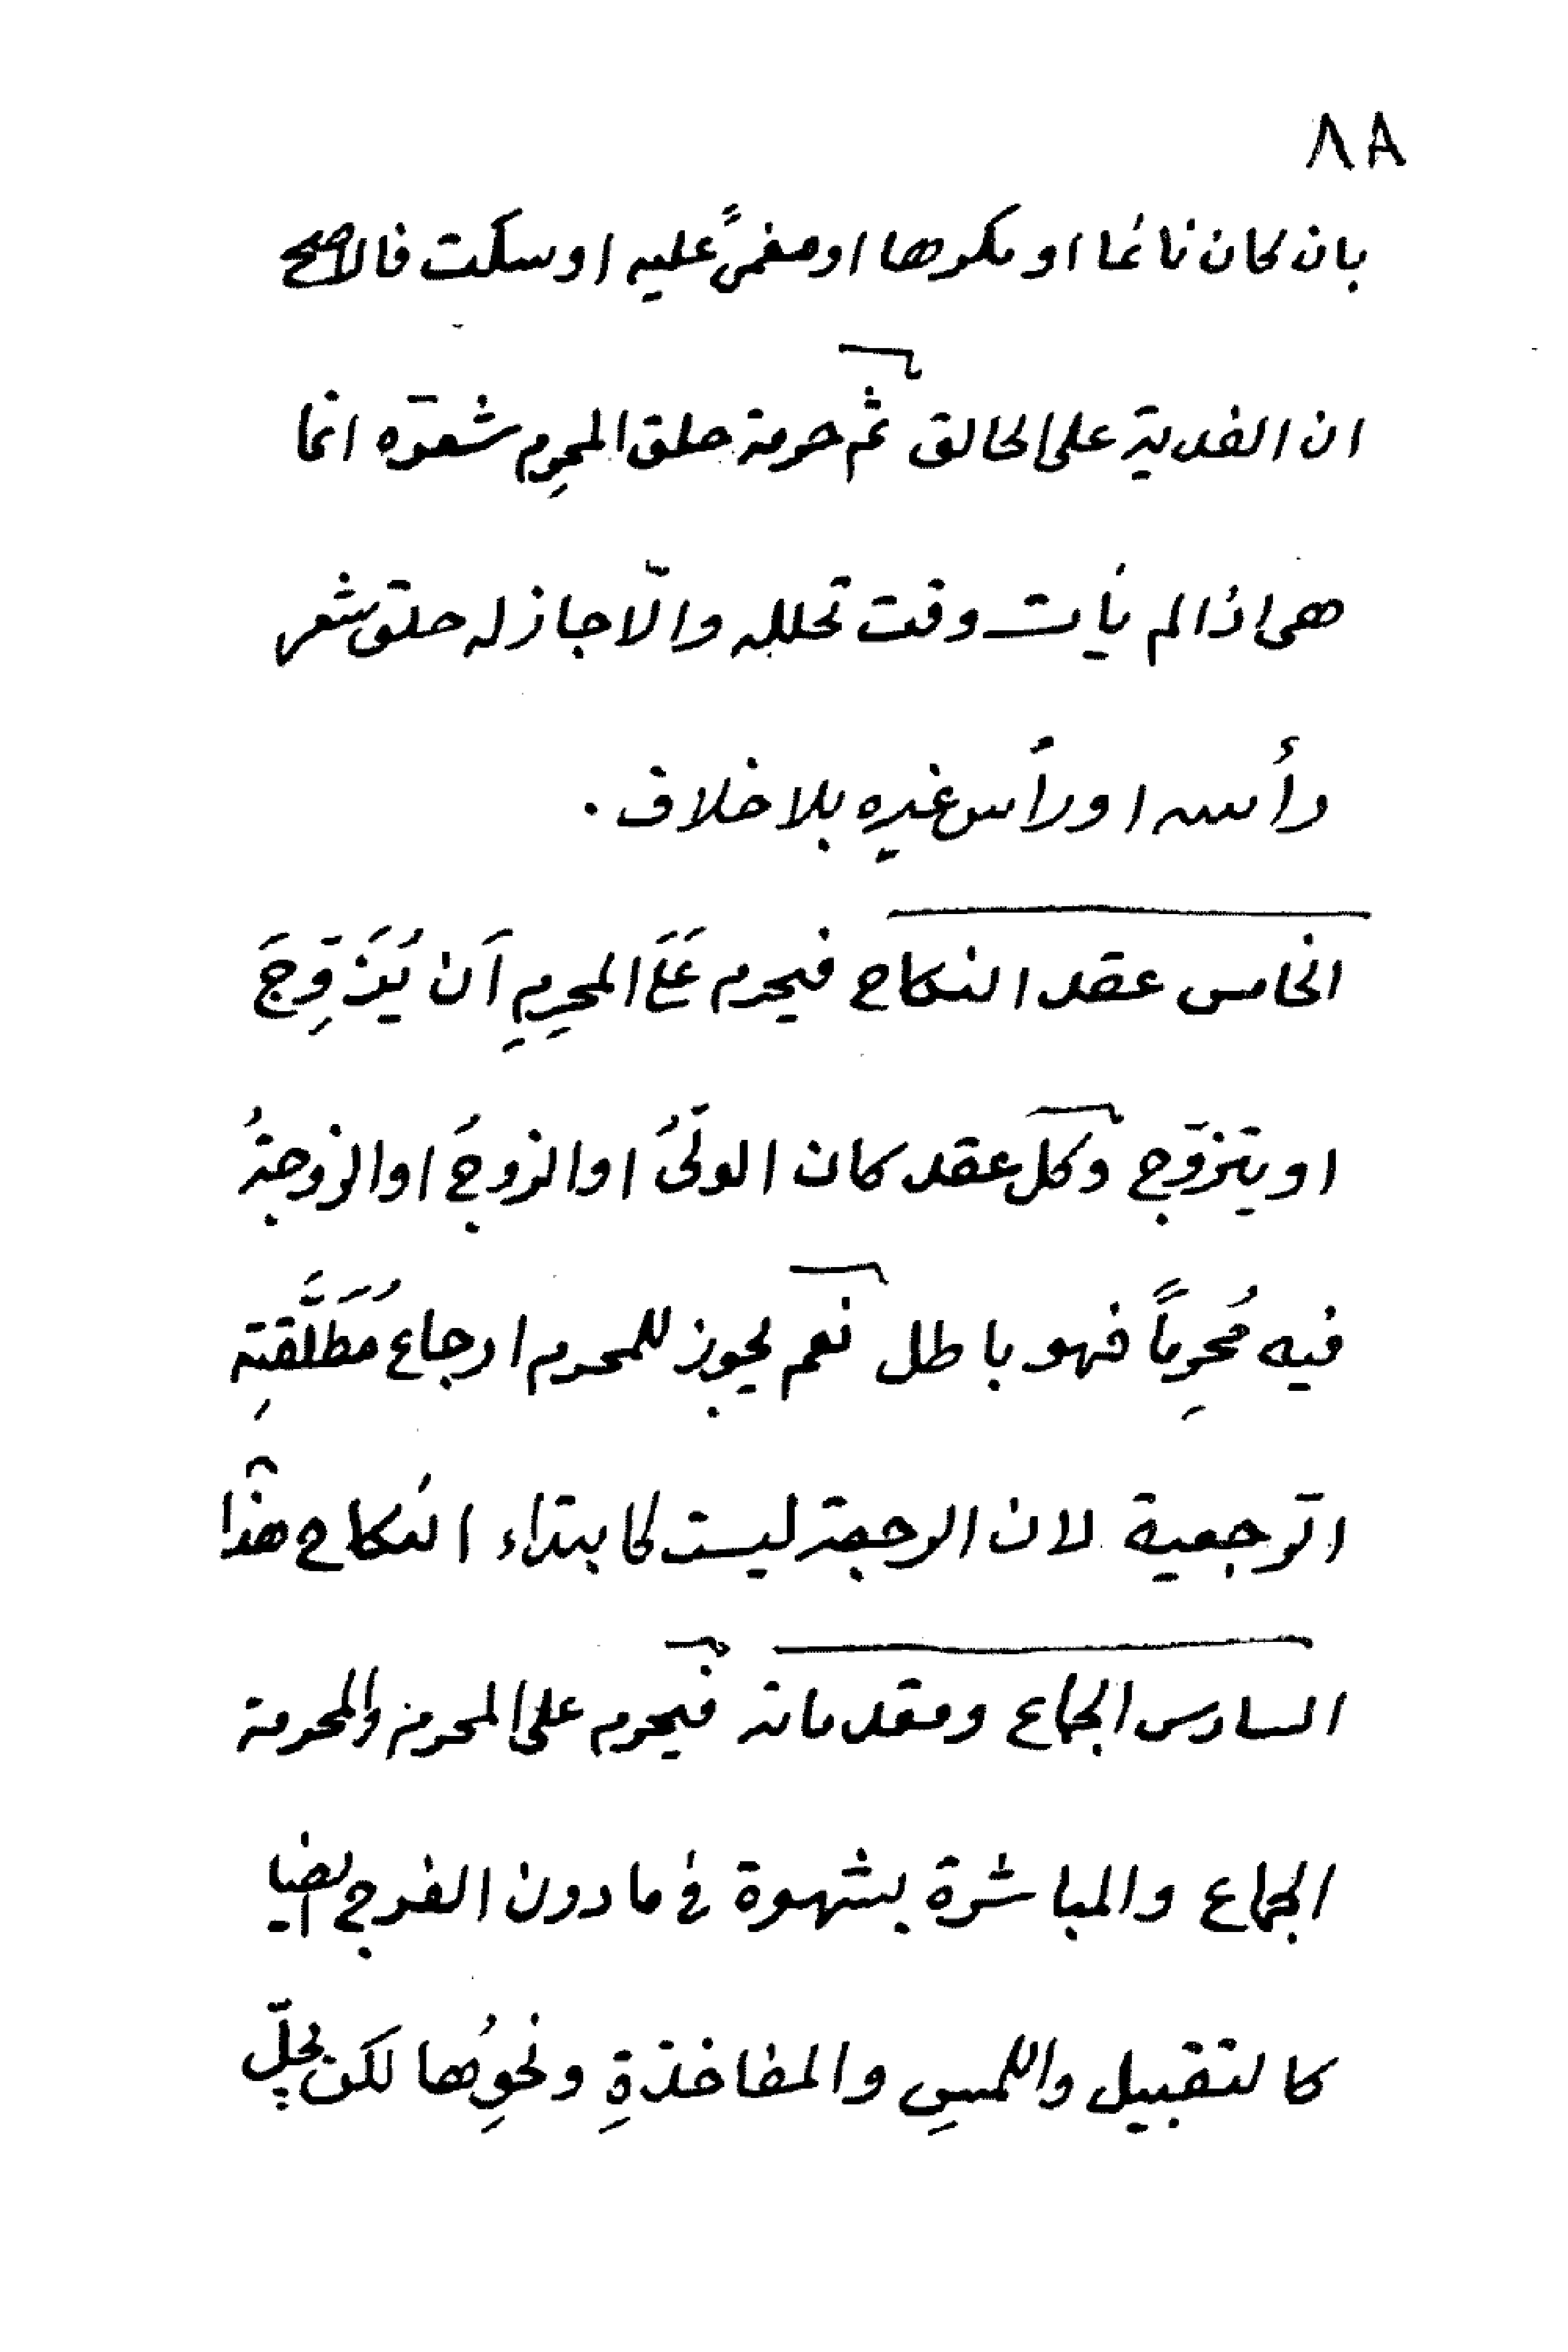 ٨٨
بان كان نائما او مكرها او مغمىً عليه او سكت فالاصح
ان الفدية على الحالق ثم حرمة حلق المحرِم شعرَه انما
هى اذا لم يأت وقت تحلله والّا جاز له حلق شعر
رأسه او رأس غيره بلا خلاف .
الخامس عقد النكاح فيحرم عَلَى المحرِمِ اَن يُزَوِّجَ
او يتزوّج وكل عقد كان الولىُّ او الزوجُ او الزوجةُ
فيه مُحرِماً فهو باطل نعم يجوز للمحرم ارجاع مُطَلَّقتِه
الرّجعية لان الرجعة ليست كابتداء النكاح هذا
السادس الجماع ومقدماته فيحرم على المحرم والمحرمة
الجماع والمباشرة بشهوة فى ما دون الفرج ايضا
كالتقبيل واللمسِ والمفاخذةِ ونحوِها لكن يحلّ